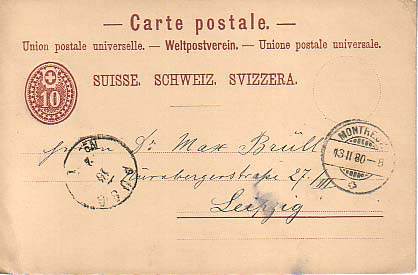 — Carte postale. —
Union postale universelle. — Weltpostverein. — Unione postale universale.
SUISSE. SCHWEIZ. SVIZZERA.
10
MONTRE
13 II 80 - 8
Herrn Dr Max Brüll
Nürnbergerstraße 27/III
Leipzig